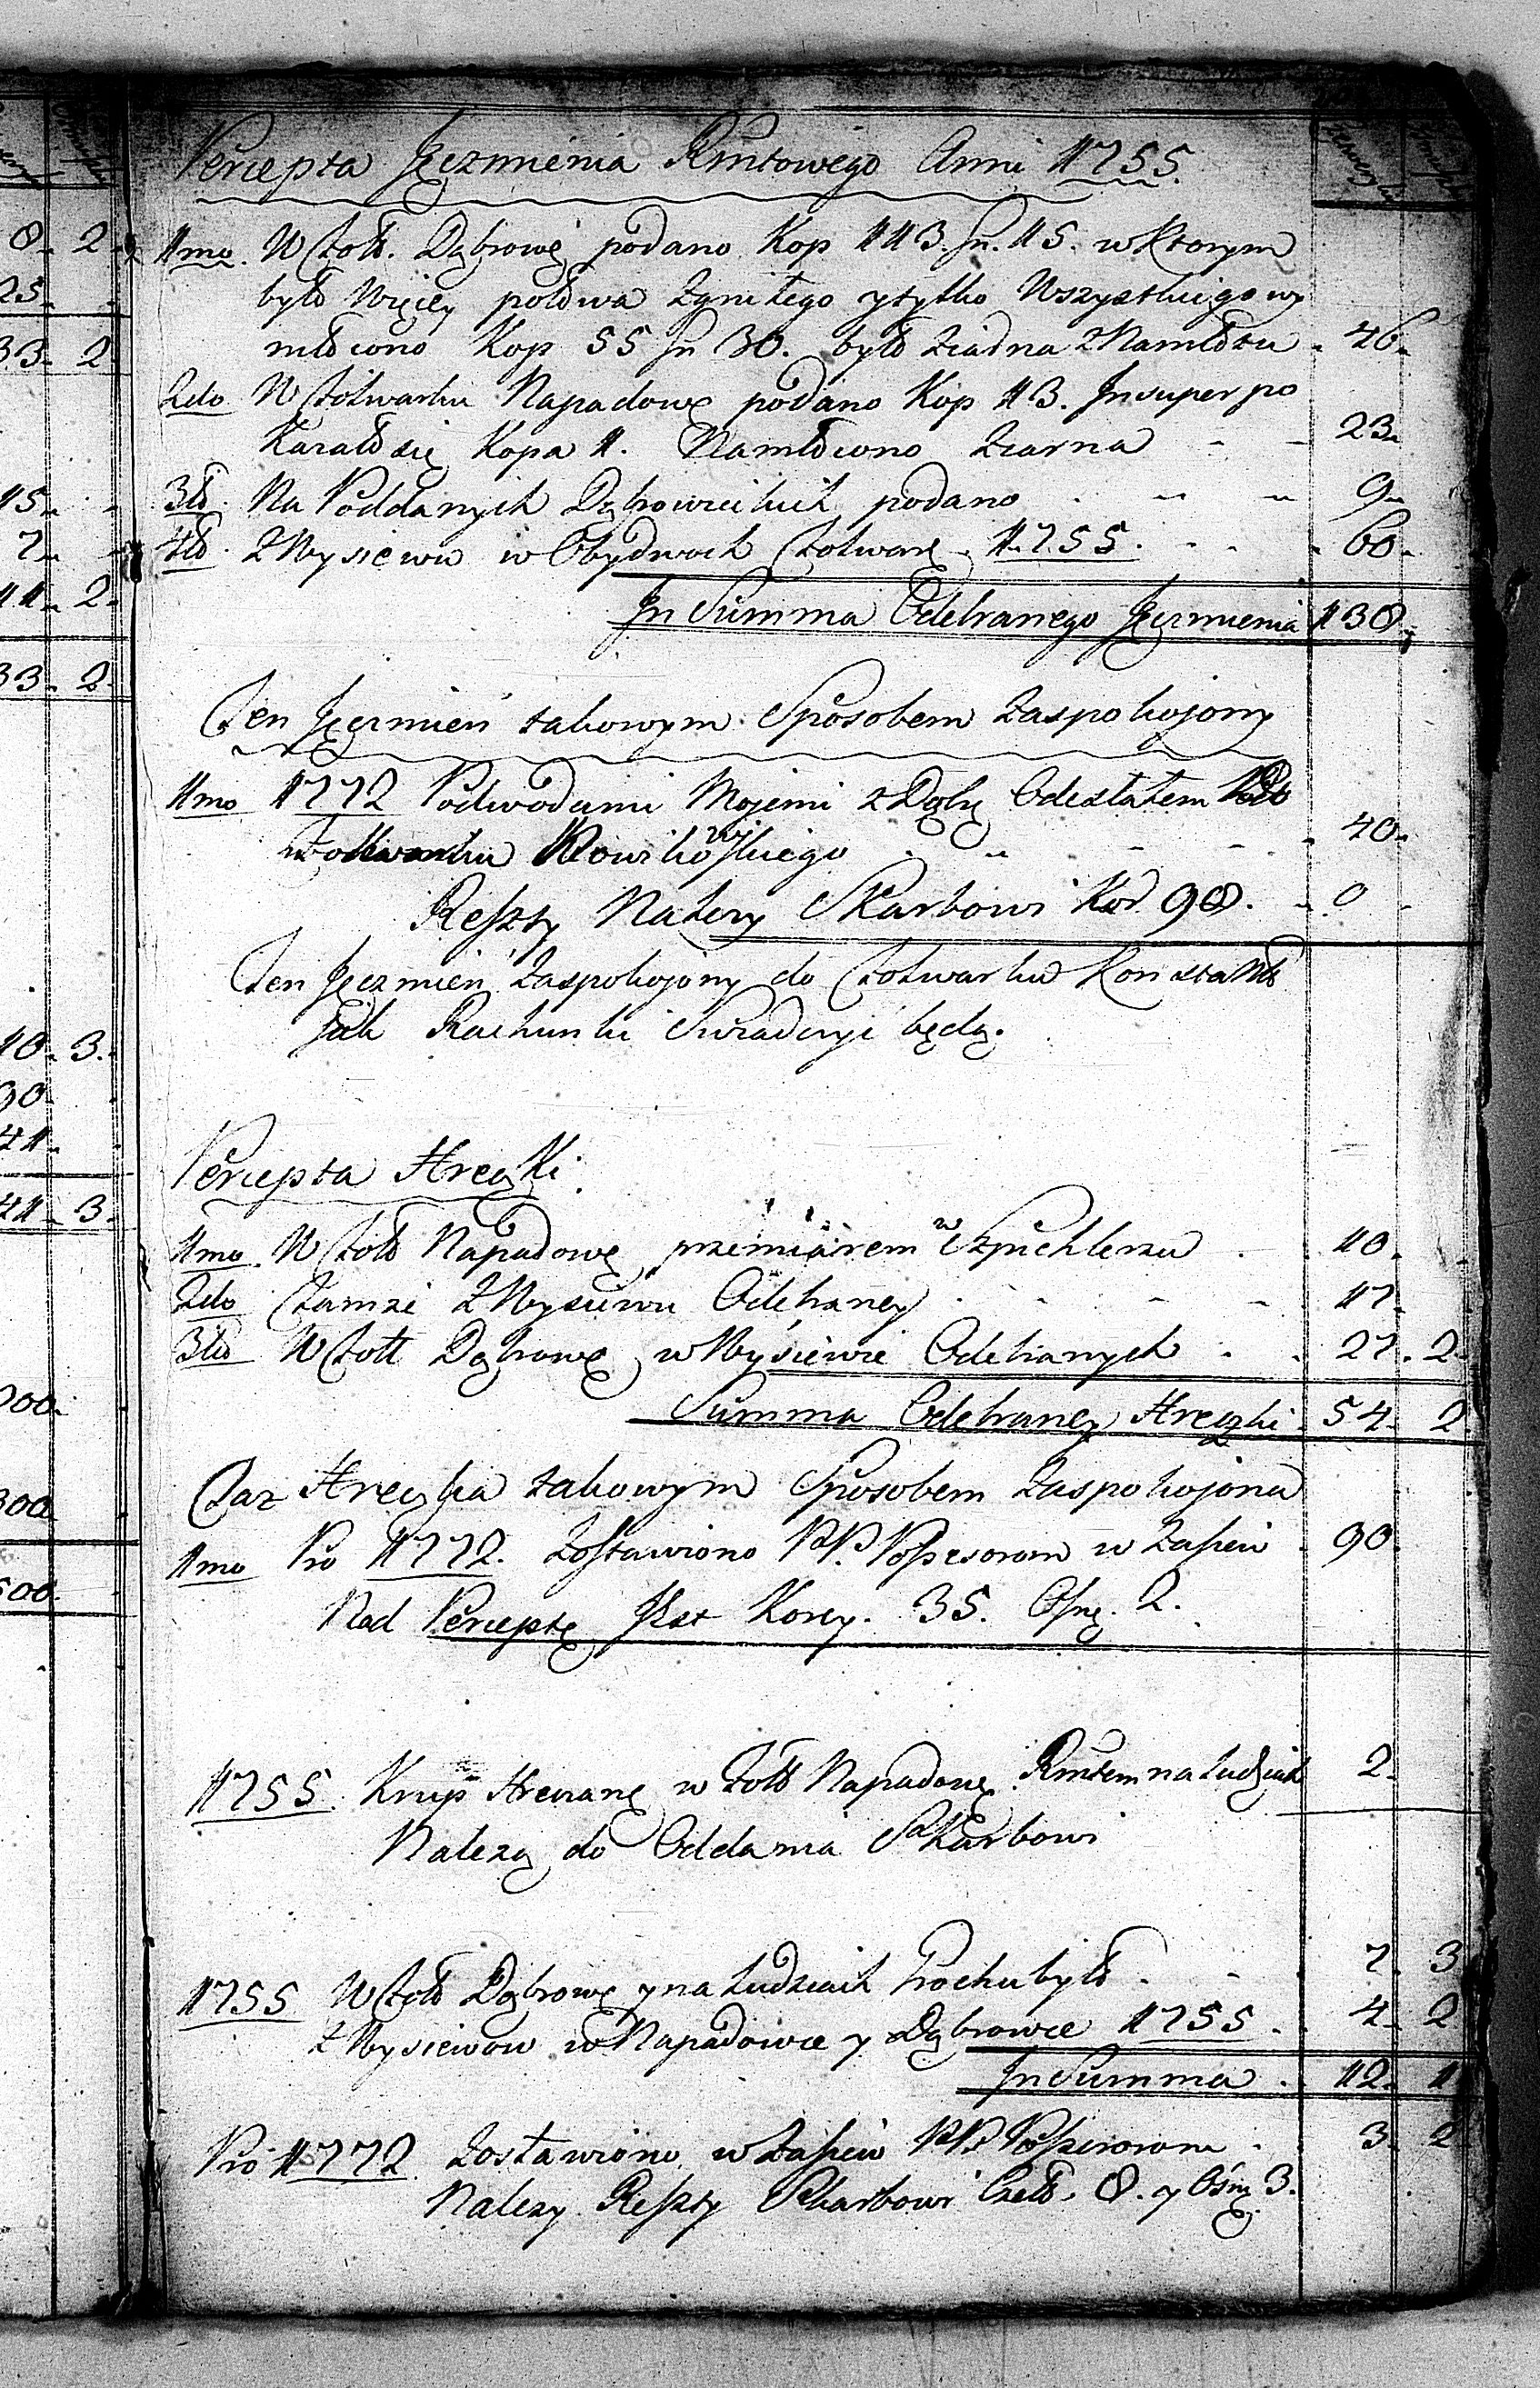 Percepta Jęczmienia Rmtowego Anni 1755.
1mo. W fołw. Dąbrowę podano Kop 113. Sn. 15. w ktorym
było więcey połowa zgniłego y tylko wszystkiego wy
młócono Kop 55 Sn 30. było ziarna z Namłotu - 46-
2do W folwarku Napadowę podano Kop 13. Insuper po
kazało się Kopa 1. Namłócono Ziarna - - 23-
3tio. Na Poddanych Dąbrowieckich podano - - - 9-
4to. Z Wysiewu w Obydwoch folwark. 1755. - - - 60-
In Summa Odebranego Jęczmienia 138-
Ten Jęczmień takowym Sposobem zaspokojony
1mo 1772 Podwodami Mojemi z Dąbr Odesłałem
folwarku - - - 40-
Reszty Należy Skarbowi Kor 98. - 0 -
Ten Jęczmień zaspokojony do folwarku
Jak Rachunki Swiadczyć będą.
Percepta Hreczki.
1mo. W fołw Napadowę przemiarem w Szpichlerzu - 10-
2do Tamże z Wysiewu Odebraney - - - - 17-
3tio W fołw Dąbrowę w Wysiewie Odebranych - - 27. 2-
Summa Odebraney Hreczki. 54- 2
Taż Hreczka takowym Sposobem Zaspokojona
1mo Pro 1772. Zostawiono PP. Possesorom w Zasiew - 90-
Nad Perceptę Jest Korcy. 35. Ośm. 2.
1755. Krup Hreczane w fołw Napadowę na ludziach 2-
Należą do Oddania Skarbowi
1755 W fołw Dąbrowę y na ludziach Grochu było - - 7- 3
z Wysiewow w Napadowce y Dąbrowce 1755. - 4- 2
In Summa - 12- 1
Pro 1772 Zostawiono w Zasiew PP. Possesorom - 3- 2
Należy Reszty Skarbowi 8. y Ośm 3.
8- 2-
25-
33- 2
15-
7-
11- 2-
33- 2-
10- 3.
90-
41-
41- 3-